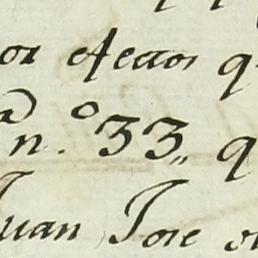 or efectos q
n.º 33,, q
Juan Jose